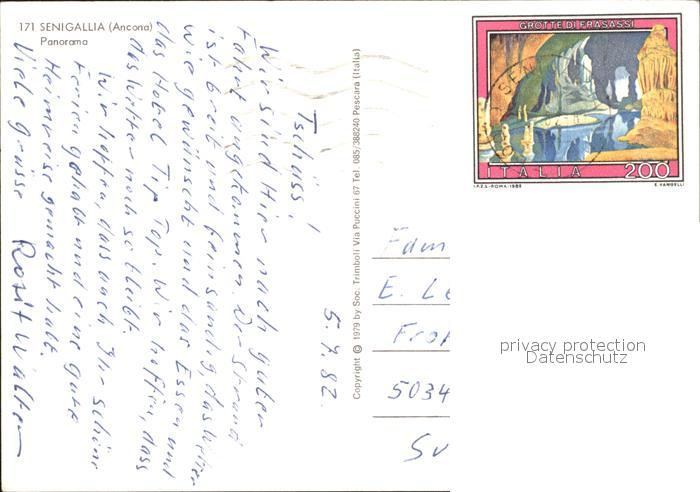 171 SENIGALLIA (Ancona)
Panorama
5.7.82
Tschüss!
Wir sind Hier nach guter
Fahrt angekommen. Der Strand
ist breit und feinsandig das Wetter
wie gewünscht und das Essen und
das Hotel Tip Top. Wir hoffen, dass
das Wetter noch so bleibt.
Wir hoffen, dass auch Ihr schöne
Ferien gehabt und eine gute
Heimreise gemacht habt.
Viele grüsse Rosi + Walter
Copyright © 1979 by Soc. Trimboli Via Puccini 67 Tel. 085/388240 Pescara (Italia)
GROTTE DI FRASASSI
SEN
ITALIA 200
I.P.Z.S.-ROMA-1982 E. VANGELLI
Fam
E. Le
5034
Su
privacy protection
Datenschutz